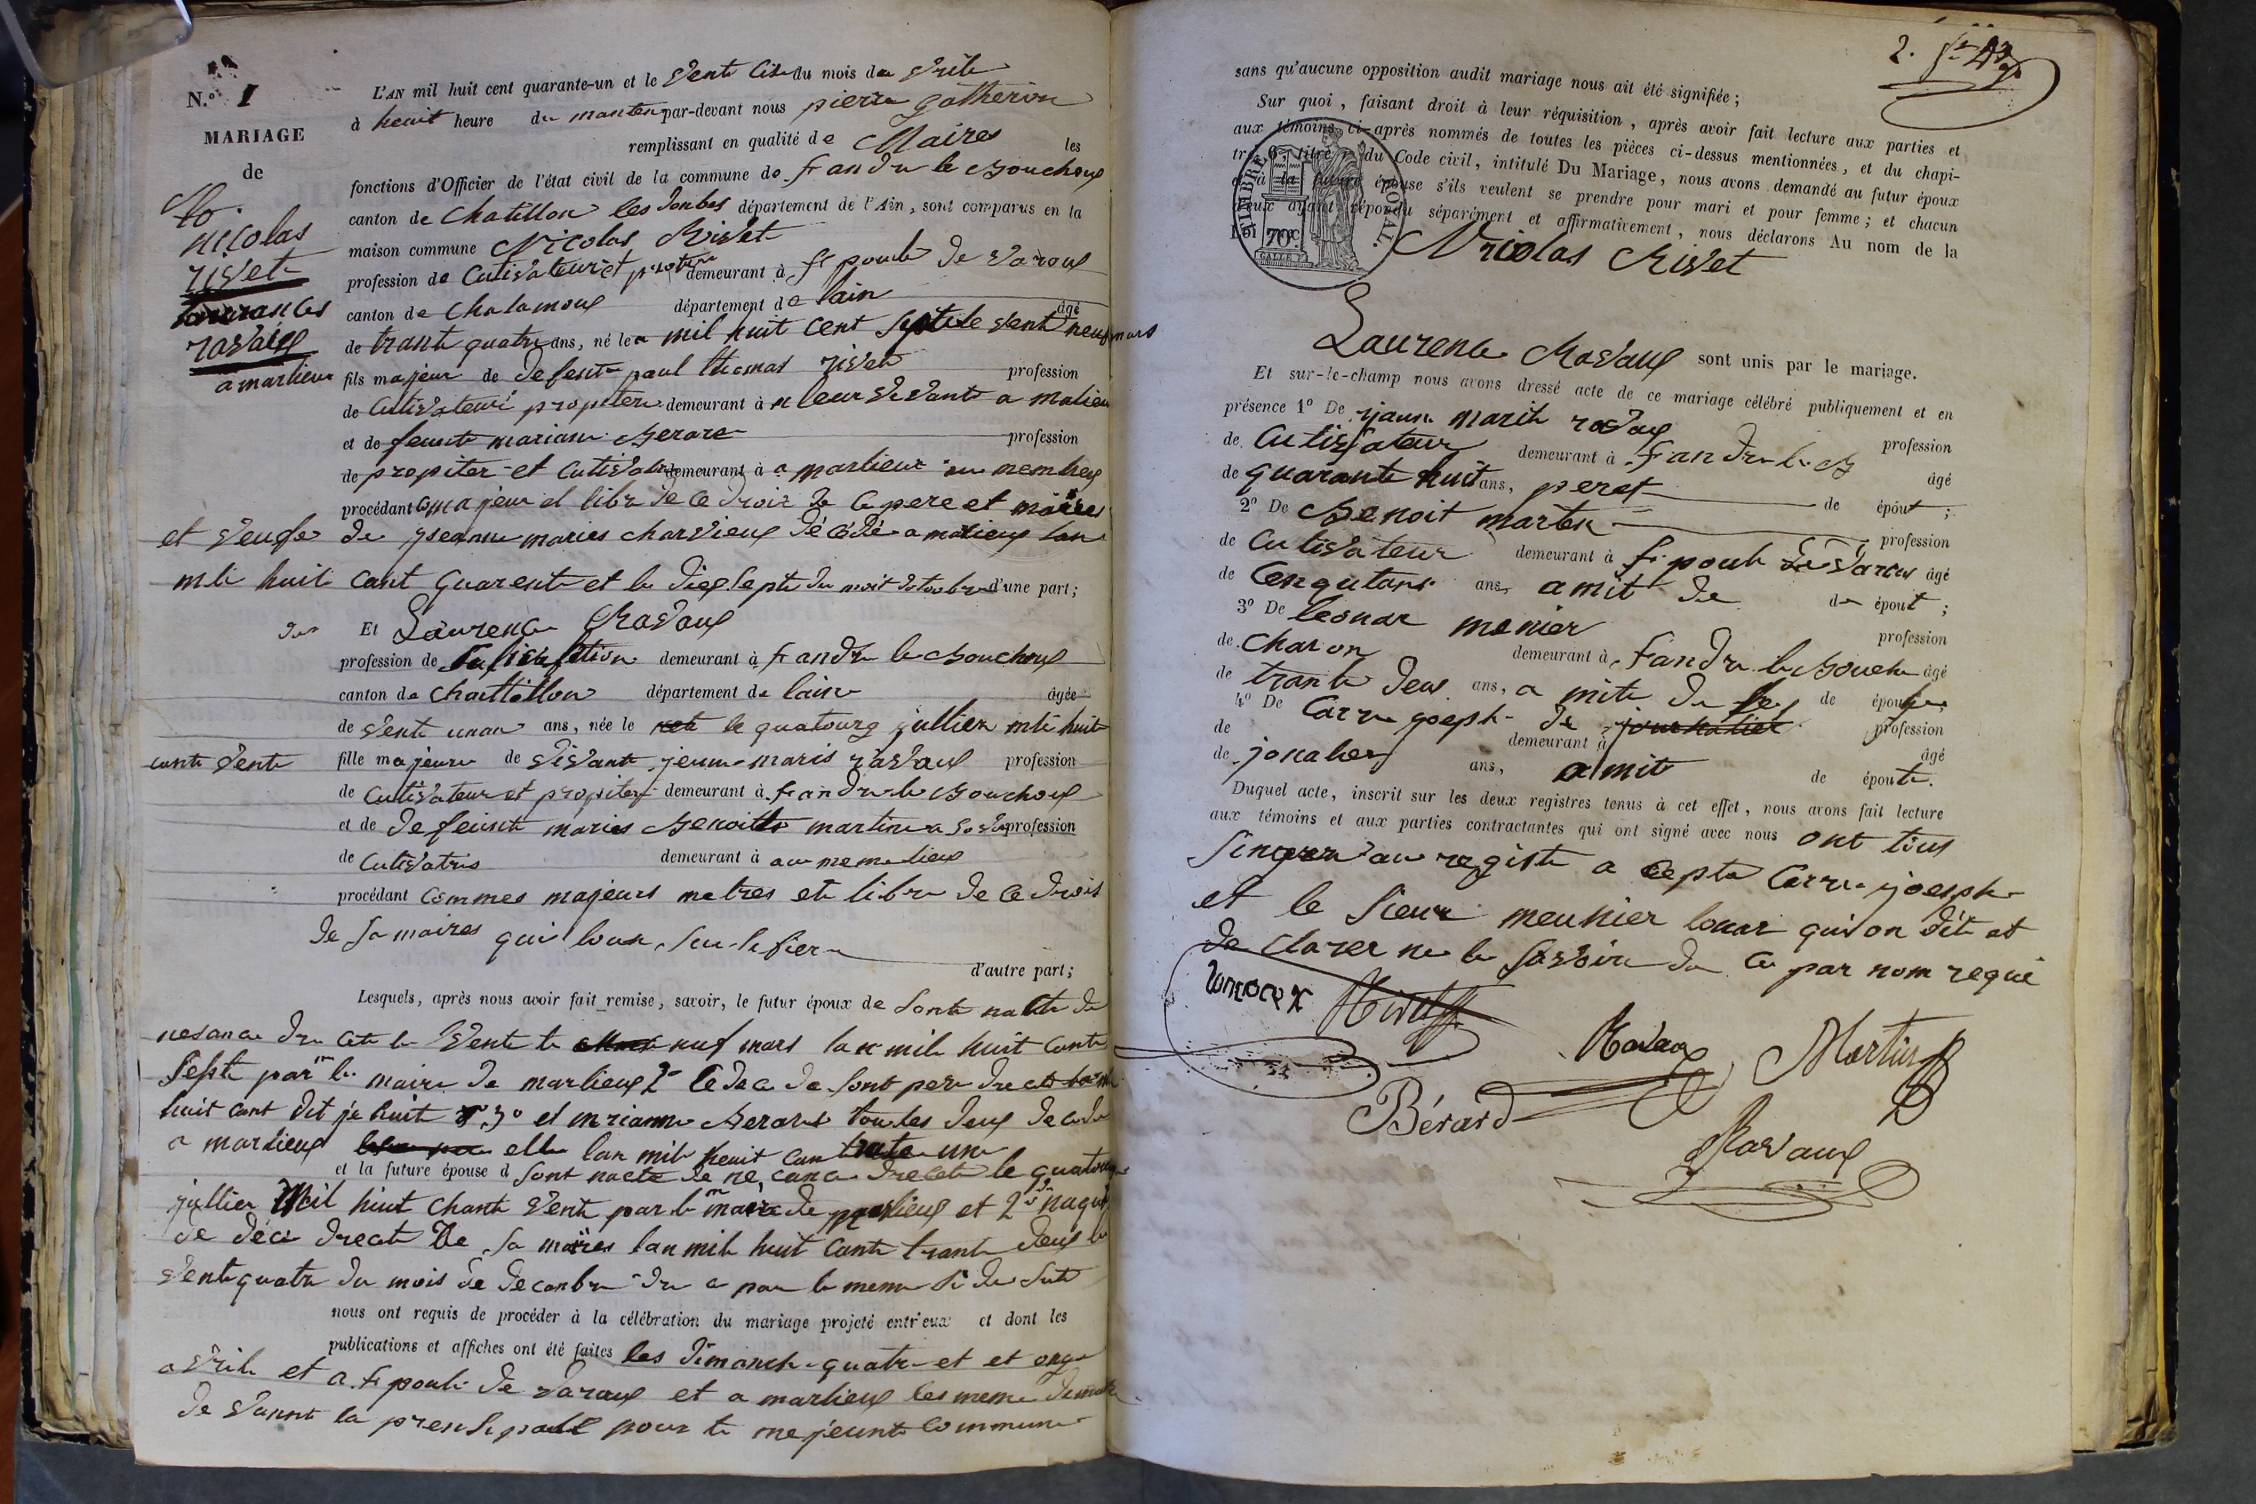 N.º 1
MARIAGE
de
nicolas
rivet
ravaux
a marlieux
L'AN mil huit cent quarante-un et le vente sis du mois de vrile
à heuit heure du manten par-devant nous pierre gatheron
remplissant en qualité de Maires les
fonctions d'Officier de l'état civil de la commune de st andre le Bouchoux
canton de Chatillon les Dombes département de l'Ain, sont comparus en la
maison commune Nicolas Rivet
profession de Cutivateur et demeurant à st poule de varoux
canton de Chalamoux département de lain âgé
de trante quatre ans, né le mil huit cent septe le vente neuf mars
fils majeur de defente paul thomas rivet profession
de Cutivateur propiter demeurant à vivante a malieu
et de feunte mariane Berare profession
de propiter et Cutivater demeurant à a marlieux au nemlieux
procédant majeur et libre de ce droit de ce pere et maires
et veufe de jseanne maries charvieux décédé a malieux lan
mile huit cant quarente et le diex septe du moit dotoubre d'une part;
Et Laurence Ravaux
profession de demeurant à st andre le Bouchoux
canton de Chattillon département de lain âgée
de vente unan ans, née le le quatourz jullier mile huit
cante vente fille majeure de vivante jeune maris ravaux profession
de Cutivateur et propiter demeurant à st andre le Bouchoux
et de defeunte maries Benoitte martin profession
de Cutivatris demeurant à au meme lieux
procédant Commes majeurs metres ete libre de ce drois
de sa maires qui
d'autre part;
Lesquels, après nous avoir fait remise, savoir, le futur époux de sonte nacte de
nesance du cete le vente te neuf mars lan mile huit cante
septe par le maire de marlieux 2º le dece de sont pere
huit cant dit je huit 3º et mrianne Berard toutes deux decede
a marlieux elle lan mile heuit can trate une
et la future épouse d sont nacte de ne, cance drecete le quatourze
jullier Mil huit chante vente par le maire de marlieux et 2º
de décé drecete De sa maires lan mile huit cante trante deux le
vente quatre du mois de decanbre du a par le meme
nous ont requis de procéder à la célébration du mariage projeté entr'eux et dont les
publications et affiches ont été faites les dimanche quatre et et onze
avrile et a st poule de varaux et a marlieux les meme
de vannt la prensipalle pour te commune
2.
sans qu'aucune opposition audit mariage nous ait été signifiée;
Sur quoi, faisant droit à leur réquisition, après avoir fait lecture aux parties et
aux témoins ci-après nommés de toutes les pièces ci-dessus mentionnées, et du chapi-
tre 6, titre , du Code civil, intitulé Du Mariage, nous avons demandé au futur époux
et à la future épouse s'ils veulent se prendre pour mari et pour femme; et chacun
d'eux ayant répondu séparément et affirmativement, nous déclarons Au nom de la
Loi
TIMBRE ROYAL.
70c
Nricolas Rivet
Laurence Ravaux sont unis par le mariage.
Et sur-le-champ nous avons dressé acte de ce mariage célébré publiquement et en
présence 1º De rjaune marih ravaux profession
de Cutisfateur demeurant à st andre le B âgé
de quarante huit ans, peret de épout;
2º De Benoit marten profession
de Cutivateur demeurant à st poule de varaus âgé
de Cenqutans ans, amit de de épout;
3º De leonar menier profession
de charon demeurant à st andre le Bouche âgé
de trante deux ans, a mite de de épouse
4º De Carre joeph de journalier profession
de demeurant à âgé
de jonalier ans, amite de époute.
Duquel acte, inscrit sur les deux registres tenus à cet effet, nous avons fait lecture
aux témoins et aux parties contractantes qui ont signé avec nous ont tous
singner au registe a cepte Carre joesph
et le sieur meunier lonar qui on dit et
de clarer ne le savoire de ce par nom requi
Ravaux
Martin
Bérard
Ravaux